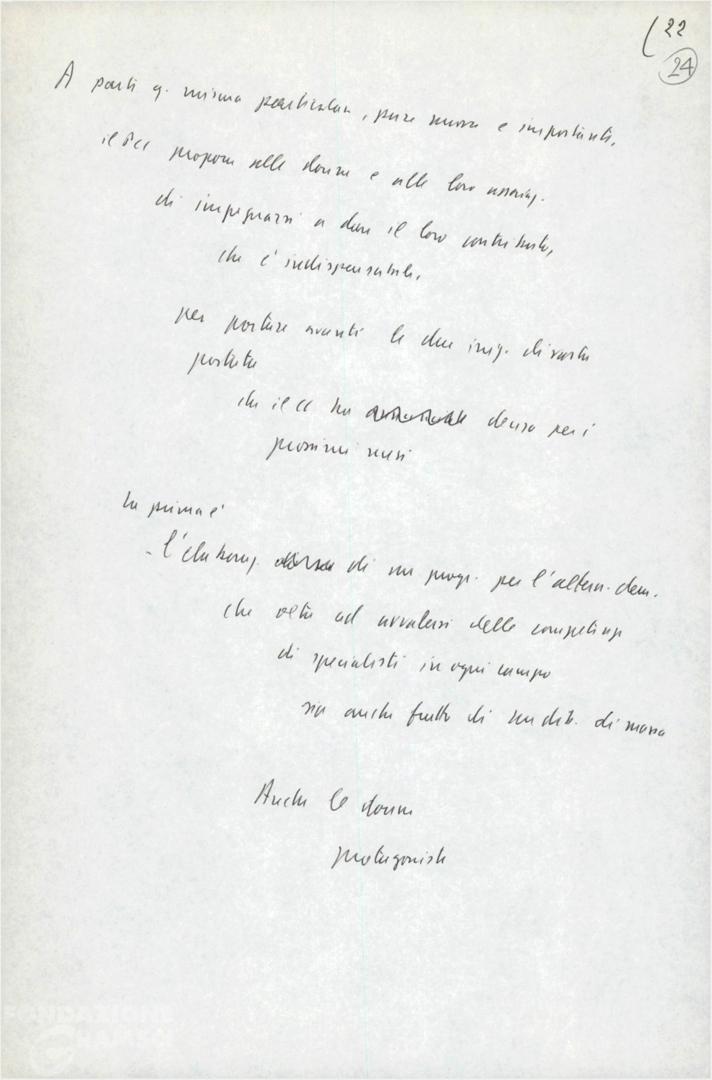 22
24
A parti q. misura particolari, pure nuove e importanti,
il PCI propone alle donne e alle loro associaz.
di impegnarsi a dare il loro contributo,
che è indispensabile,
per portare avanti le due iniz. di vasta
portata
che il CC ha deciso per i
prossimi mesi
La prima è
- l'elaboraz. di un progr. per l'altern. dem.
che oltre ad avvalersi delle competenze
di specialisti in ogni campo
sia anche frutto di un dib. di massa
Anche le donne
protagoniste
FONDAZIONE
GRAMSCI